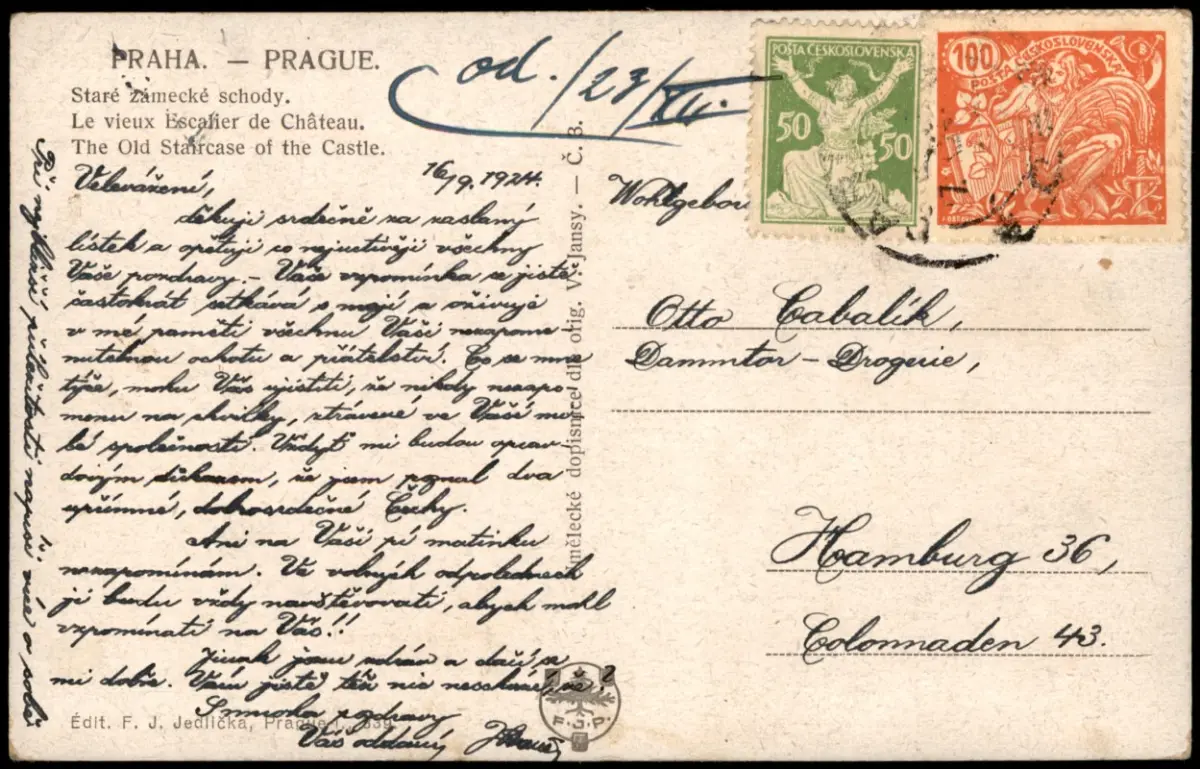 PRAHA. — PRAGUE.
Staré zámecké schody.
Le vieux Escalier de Château.
The Old Staircase of the Castle.
od. /23/VII.
POŠTA ČESKOSLOVENSKA
50 50
100
POŠTA ČESKOSLOVENSKÁ
16/9. 1924.
Velevážení,
děkuji srdečně za zaslaný
lístek a opětuji co nejuctivěji všechny
Vaše pozdravy. – Vaše vzpomínka se jistě
častokrát setkává s mojí a oživuje
v mé paměti všechnu Vaši nezapome-
nutelnou ochotu a přátelství. Co se mne
týče, mohu Vás ujistiti, že nikdy nezapo-
menu na chvilky, ztrávené ve Vaší mi-
lé společnosti. Vždyť mi budou oprav-
dovým důkazem, že jsem poznal dva
upřímné, dobrosrdečné Čechy.
Ani na Vaši pí matinku
nezapomínám. Ve volných odpolednech
ji budu vždy navštěvovati, abych mohl
vzpomínati na Vás!!
Jinak jsem zdráv a daří se
mi dobře. Vám jistě též nic neschází, že?
S mnoha pozdravy
Váš oddaný
Při nejbližší příležitosti napíši více o sobě
Édit. F. J. Jedlička, Prague I., 339
Umělecké dopisnice dle orig. V. Jansy. — Č. B.
Wohlgebor
Otto Cabalík,
Dammtor – Drogerie,
Hamburg 36,
Colonnaden 43.